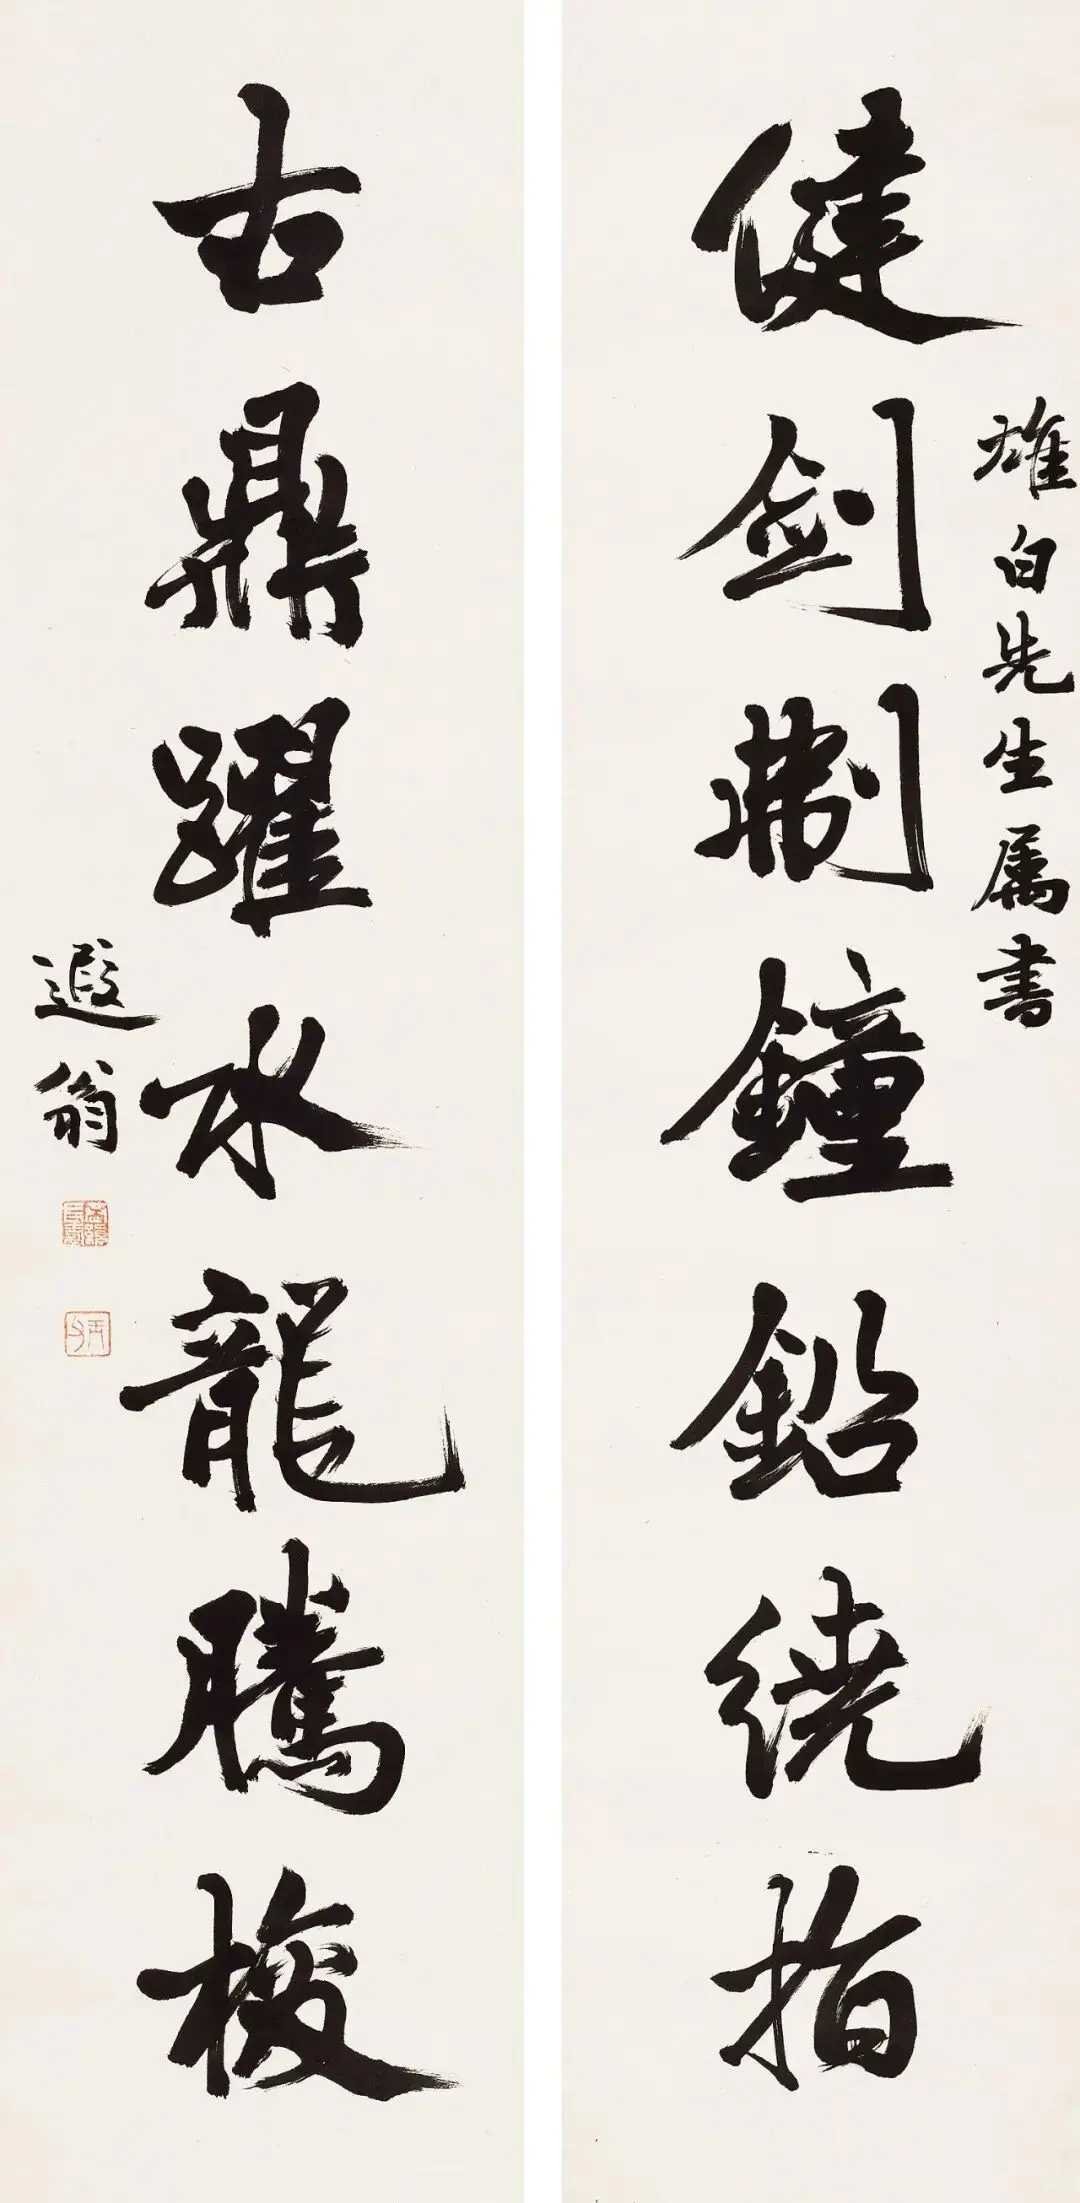 健剑刜鐘鉛繞指
雄白先生属書
古鼎躍水龍騰梭
遐翁